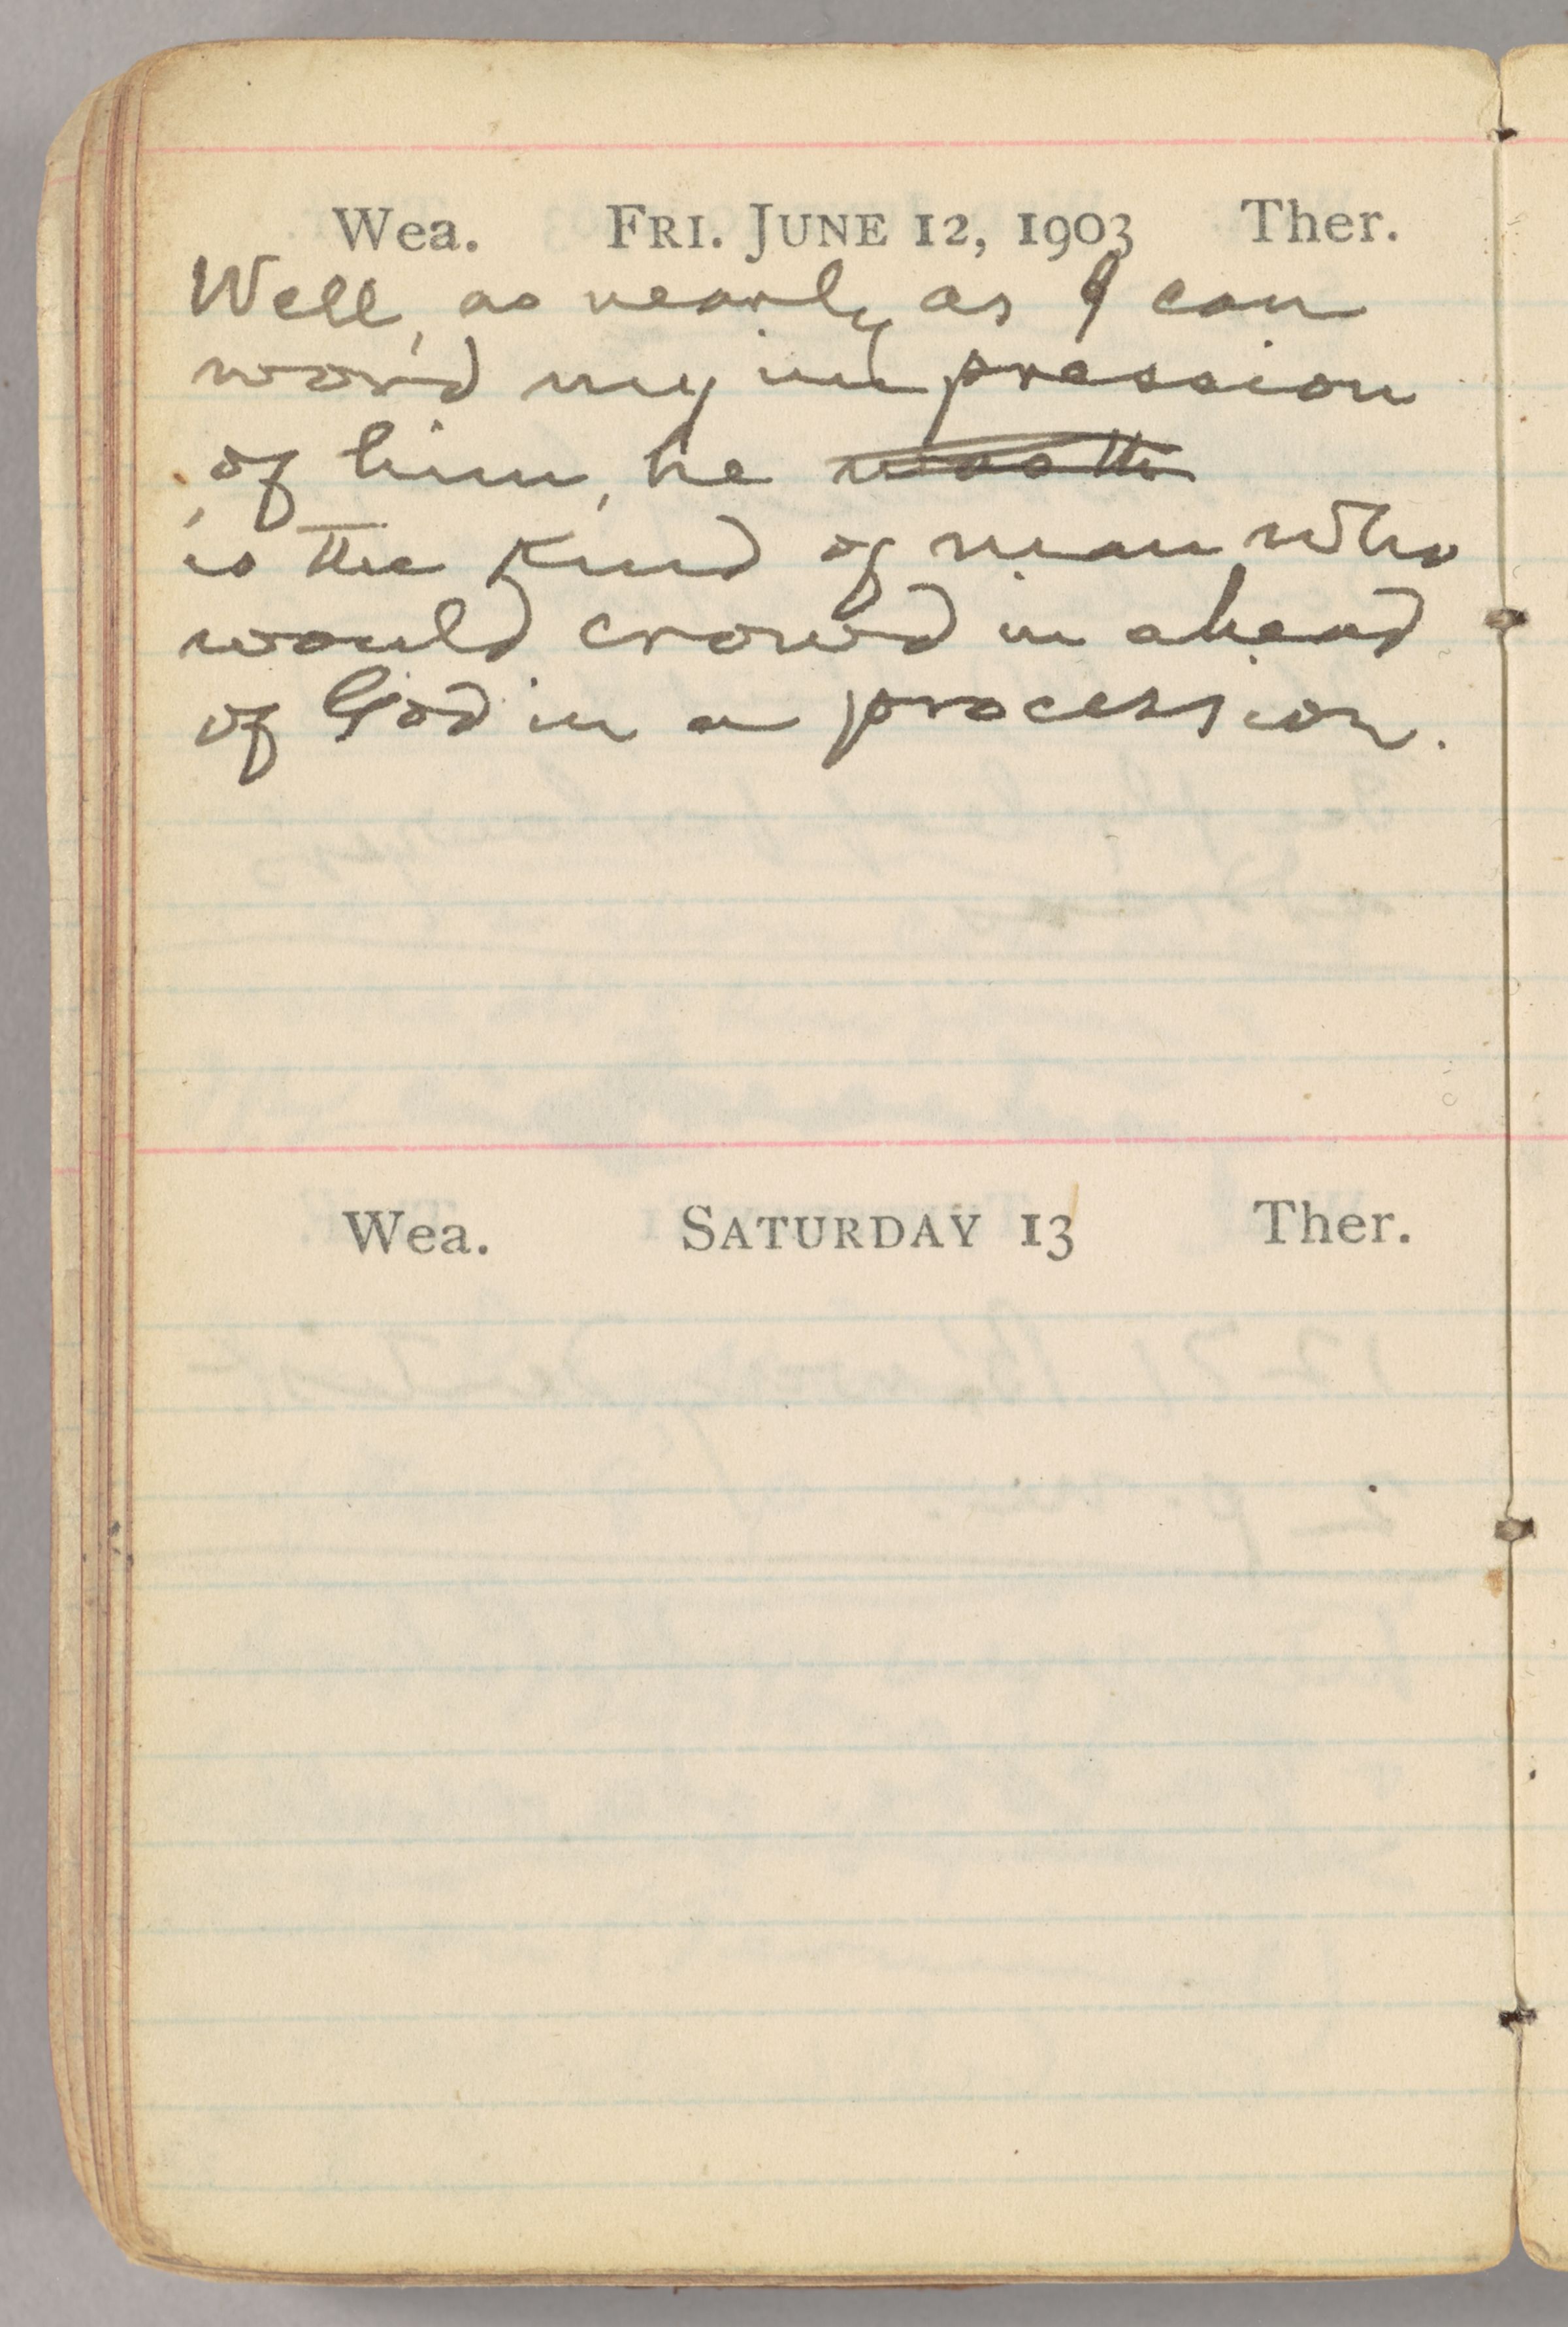 Wea. FRI. JUNE 12, 1903 Ther.
Well, as nearly as I can
word my impression
of him, he was the
is the kind of man who
would crowd in ahead
of God in a procession.
Wea. SATURDAY 13 Ther.